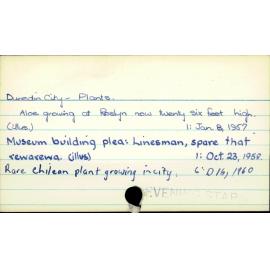 Dunedin City - Plants.
Aloe growing at Roslyn now twenty six feet high.
(illus.) 1: Jan 8, 1957
Museum building plea: Linesman, spare that
rewarewa (illus) 1: Oct 23, 1958.
Rare Chilean plant growing in city. 6: D 16, 1960
EVENING STAR